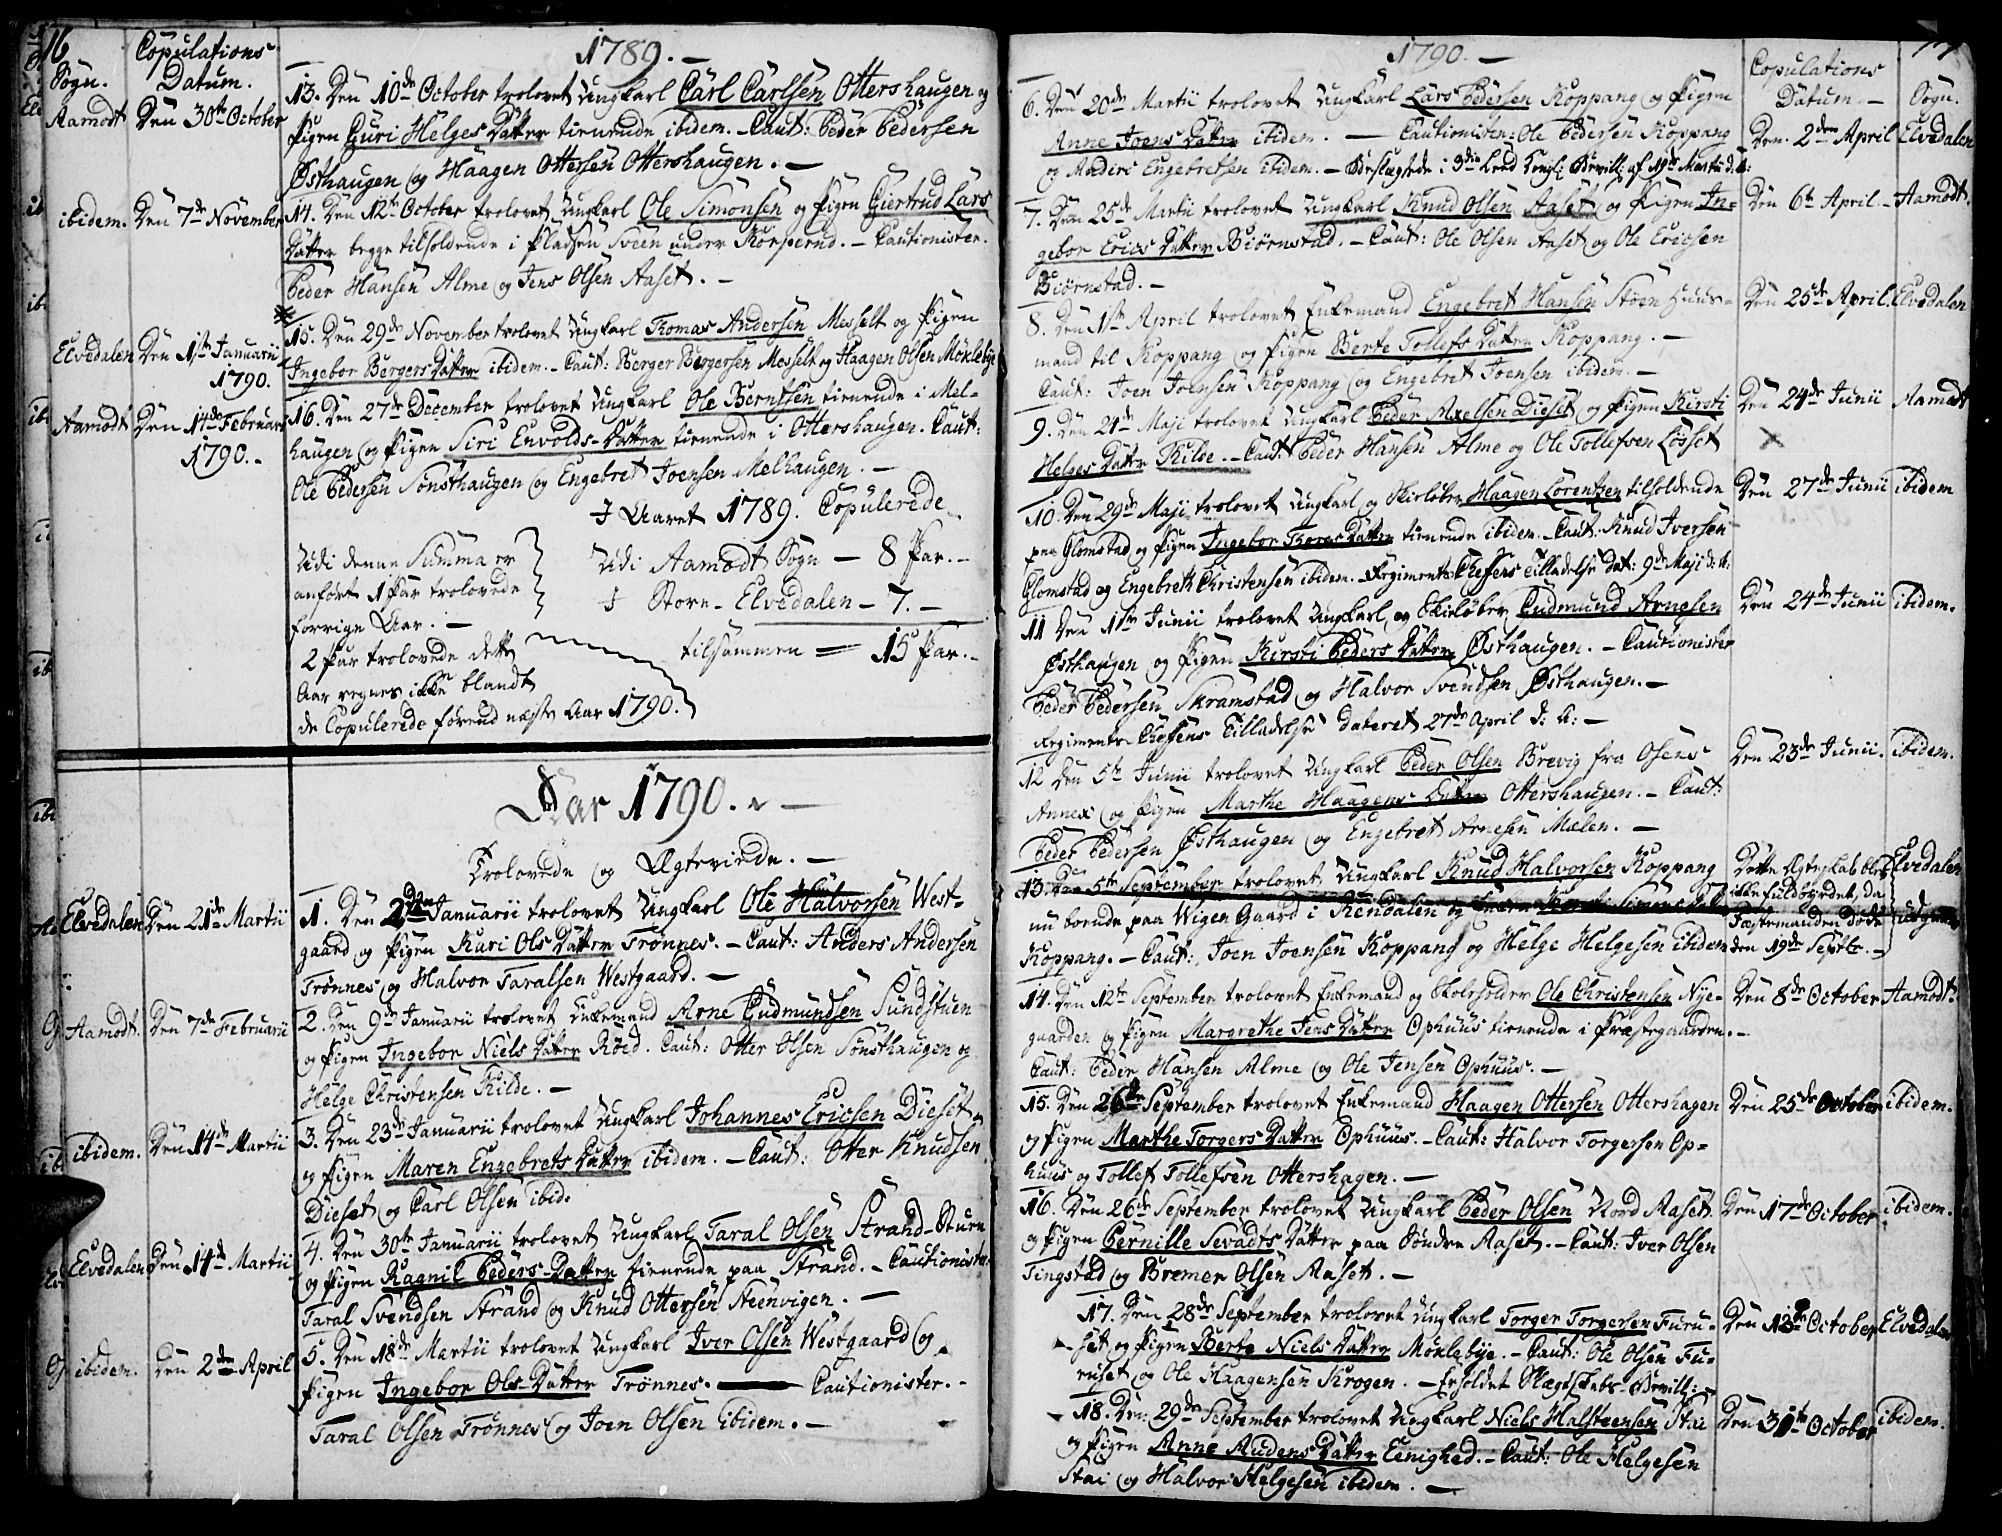 16
Copulations
1789. —
Sogn. Datum.
Aamodt Den 30te October
13. Den 10de October trolovet Ungkarl Carl Carlsen Ottershaugen og
Pigen Guri Helges Datter tienende ibidem. — Caut: Peder Pedersen
Østhaugen og Haagen Ottersen Ottershaugen. —
ibidem. Den 7de November
14. Den 12te October trolovet Ungkarl Ole Simonsen og Pigen Giertrud Lars
Datter begge tilholdende i Pladsen Sveen under Korperud. — Cautionister.
Peder Hansen Alme og Jens Olsen Aaset. —
Elvedalen Den 1ste Januarii
1790.
15. Den 29de November trolovet Ungkarl Thomas Andersen Messelt og Pigen
Ingebor Bergers Datter ibidem. — Caut: Berger Bergersen Messelt og Haagen Olsen Møklebye
Aamodt Den 14de Februarii
1790. —
16. Den 27de December trolovet Ungkarl Ole Berntsen tienende i Mel-
haugen og Pigen Siri Envolds-Datter tienende i Ottershaugen. Caut:
Ole Pedersen Sønsthaugen og Engebret Joensen Melhaugen. —
I Aaret 1789. Copulerede
Udi Aamodt Sogn — 8 Par. —
I Store-Elvedalen — 7. —
tilsammen = 15 Par. —
Udi denne Summa er
anført 1 Par trolovede
forrige Aar. —
2 Par trolovede dette
Aar regnes ikke blandt
de Copulerede førend næste Aar 1790.
Aar 1790. —
Trolovede og Ægteviede. —
Elvedalen Den 21de Martii
1. Den 2den Januarii trolovet Ungkarl Ole Halvorsen West-
gaard og Pigen Kari Ols Datter Trønnes. — Caut: Anders Andersen
Trønnes og Halvor Taralsen Westgaard. —
Aamodt. Den 7de Februarii
2. Den 9de Januarii trolovet Enkemand Arne Gudmundsen Sundstuen
og Pigen Ingebor Niels Datter Røed. Caut: Otter Olsen Sønsthaugen og
Helge Christensen Kilde. —
ibidem. Den 14de Martii
3. Den 23de Januarii trolovet Ungkarl Johannes Ericsen Dieset
og Pigen Maren Engebrets Datter ibidem. — Caut: Otter Knudsen
Dieset og Carl Olsen ibid:
Elvedalen Den 14de Martii
4. Den 30te Januarii trolovet Ungkarl Taral Olsen Strand-Stuen
og Pigen Ragnil Peders-Datter tienende paa Strand. — Cautionister
Taral Svendsen Strand og Knud Ottersen Steenvigen. —
ibidem. Den 2den April
5. Den 18de Martii trolovet Ungkarl Iver Olsen Westgaard og
Pigen Ingebor Ols-Datter Trønnes. — Cautionister. —
Taral Olsen Trønnes og Joen Olsen ibidem. —
1790. —
Copulations
Datum. — Sogn.
6. Den 20de Martii trolovet Ungkarl Lars Pedersen Koppang og Pigen
Anne Joens Datter ibidem. — Cautionister: Ole Pedersen Koppang
og Anders Engebretsen ibidem. — Beslægtede i 3die Leed Kongl: Bevill: af 19de Martii d: A:
Den 2den April Elvedalen
7. Den 25de Martii trolovet Ungkarl Knud Olsen Aaset og Pigen In-
gebor Erics Datter Biørnstad. — Caut: Ole Olsen Aaset og Ole Ericsen
Biørnstad. —
Den 6te April. — Aamodt.
8. Den 1ste April trolovet Enkemand Engebret Hansen Støen Huus-
mand til Koppang og Pigen Berte Tollefs Datter Koppang. —
Caut: Joen Joensen Koppang og Engebret Joensen ibidem. —
Den 25de April. Elvedalen
9. Den 24de Maji trolovet Ungkarl Peder Axelsen Dieset og Pigen Kirsti
Helges Datter Kilde. — Caut: Peder Hansen Alme og Ole Tollefsen Løsset
Den 24de Junii Aamodt
10. Den 29de Maji trolovet Ungkarl og Skieløber Haagen Lorentzen tilholdende
paa Glomstad og Pigen Ingebor Thores Datter tienende ibidem. — Caut: Knud Iversen
Glomstad og Engebreth Christensen ibidem. — Regiments Chefens Tilladelse dat: 9de Maji d: A:
Den 27de Junii ibidem
11 Den 1ste Junii trolovet Ungkarl og Skieløber Gudmund Arnesen
Østhaugen og Pigen Kirsti Peders Datter Østhaugen. — Cautionister
Peder Pedersen Skramstad og Halvor Svendsen Østhaugen. —
Regiments-Chefens Tilladelse dateret 27de April d: A: —
Den 24de Junii ibidem.
12 Den 5te Junii trolovet Ungkarl Peder Olsen Brevig fra Osens
Annex og Pigen Marthe Haagens Datter Ottershaugen. — Caut:
Peder Pedersen Østhaugen og Engebret Arnesen Mælen. —
Den 23de Junii. ibidem.
13. Den 5te September trolovet Ungkarl Knud Halvorsen Koppang
nu boende paa Wigen Gaard i Rendalen og Simens Datter
Koppang. — Caut: Joen Joensen Koppang og Helge Helgesen ibidem
Dette Ægteskab blev
ikke fuldbyrdet, da
Fæstemanden døde
den 19de Septbr. —
Elvedalen
udgaar
14. Den 12te September trolovet Enkemand og Skoleholder Ole Christensen Nye-
gaarden og Pigen Margrethe Jens Datter Ophuus tienende i Præstegaarden. —
Caut: Peder Hansen Alme og Ole Jensen Ophuus. —
Den 8de October Aamodt.
15. Den 26de September trolovet Enkemand Haagen Ottersen Ottershagen
og Pigen Marthe Torgers Datter Ophuus. — Caut: Halvor Torgersen Op-
huus og Tollef Tollefsen Ottershagen. —
Den 25de October ibidem.
16. Den 26de September trolovet Ungkarl Peder Olsen Nord Aaset
og Pigen Pernille Sevads Datter paa Søndre Aaset. — Caut: Iver Olsen
Tingstad og Bremer Olsen Aaset. —
Den 17de October ibidem.
17. Den 28de September trolovet Ungkarl Torger Torgersen Furu-
set og Pigen Berte Niels Datter Møklebye. — Caut: Ole Olsen Fu-
ruset og Ole Haagensen Krogen. — Erholdet Slægtskabs-Bevill: —
October Elvedalen
18. Den 29de September trolovet Ungkarl Niels Halsteensen Stai
og Pigen Anne Audens Datter Eenighed. — Caut: Ole Helgesen
Stai og Halvor Helgesen ibidem. —
October ibidem.